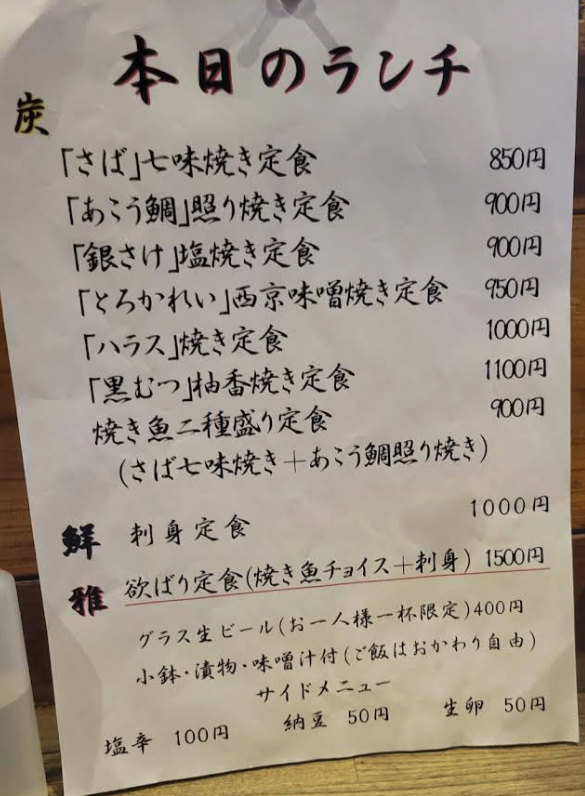 本日のランチ
炭
「さば」七味焼き定食 850円
「あこう鯛」照り焼き定食 900円
「銀さけ」塩焼き定食 900円
「とろかれい」西京味噌焼き定食 950円
「ハラス」焼き定食 1000円
「黒むつ」柚香焼き定食 1100円
焼き魚二種盛り定食 900円
(さば七味焼き+あこう鯛照り焼き)
鮮 刺身定食 1000円
雅 欲ばり定食(焼き魚チョイス+刺身) 1500円
グラス生ビール(お一人様一杯限定)400円
小鉢・漬物・味噌汁付(ご飯はおかわり自由)
サイドメニュー
塩辛 100円 納豆 50円 生卵 50円